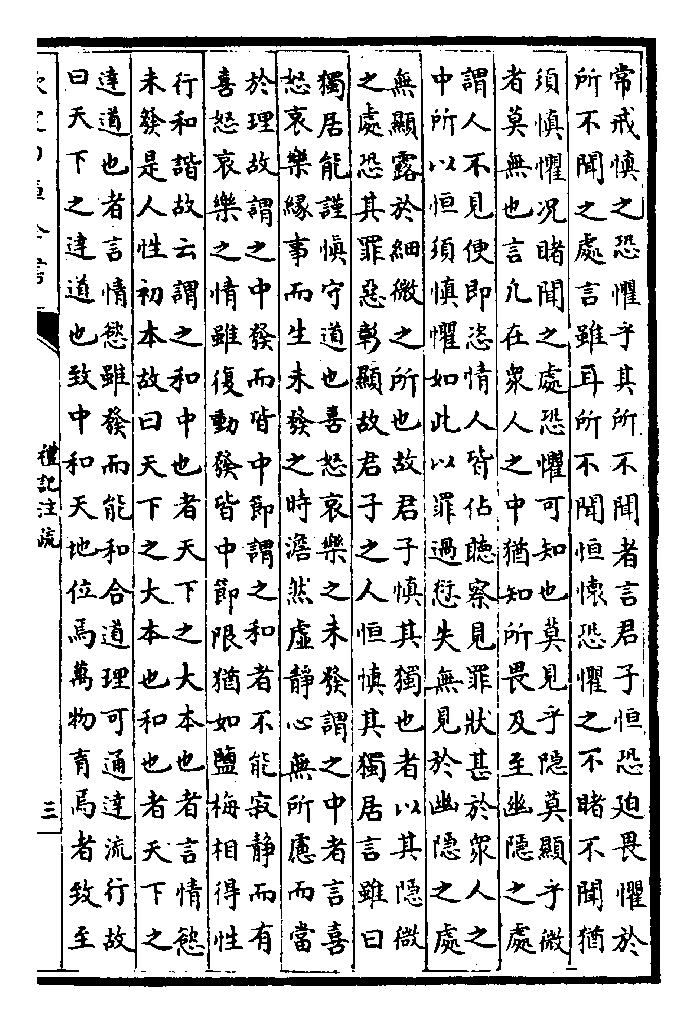 常戒慎之恐懼乎其所不聞者言君子恒恐迫畏懼於
所不聞之處言雖耳所不聞恒懷恐懼之不睹不聞猶
須慎懼况睹聞之處恐懼可知也莫見乎隱莫顯乎微
者莫無也言凢在衆人之中猶知所畏及至幽隱之處
謂人不見便即恣情人皆佔聴察見罪狀甚於衆人之
中所以恒須慎懼如此以罪過愆失無見於幽隱之處
無顯露於細微之所也故君子慎其獨也者以其隱微
之處恐其罪惡彰顯故君子之人恒慎其獨居言雖曰
獨居能謹慎守道也喜怒哀樂之未發謂之中者言喜
怒哀樂緣事而生未發之時澹然虚静心無所慮而當
於理故謂之中發而皆中節謂之和者不能寂静而有
喜怒哀樂之情雖復動發皆中節限猶如鹽梅相得性
行和諧故云謂之和中也者天下之大本也者言情慾
未發是人性初本故曰天下之大本也和也者天下之
達道也者言情慾雖發而能和合道理可通達流行故
曰天下之達道也致中和天地位焉萬物育焉者致至
禮記注疏
三